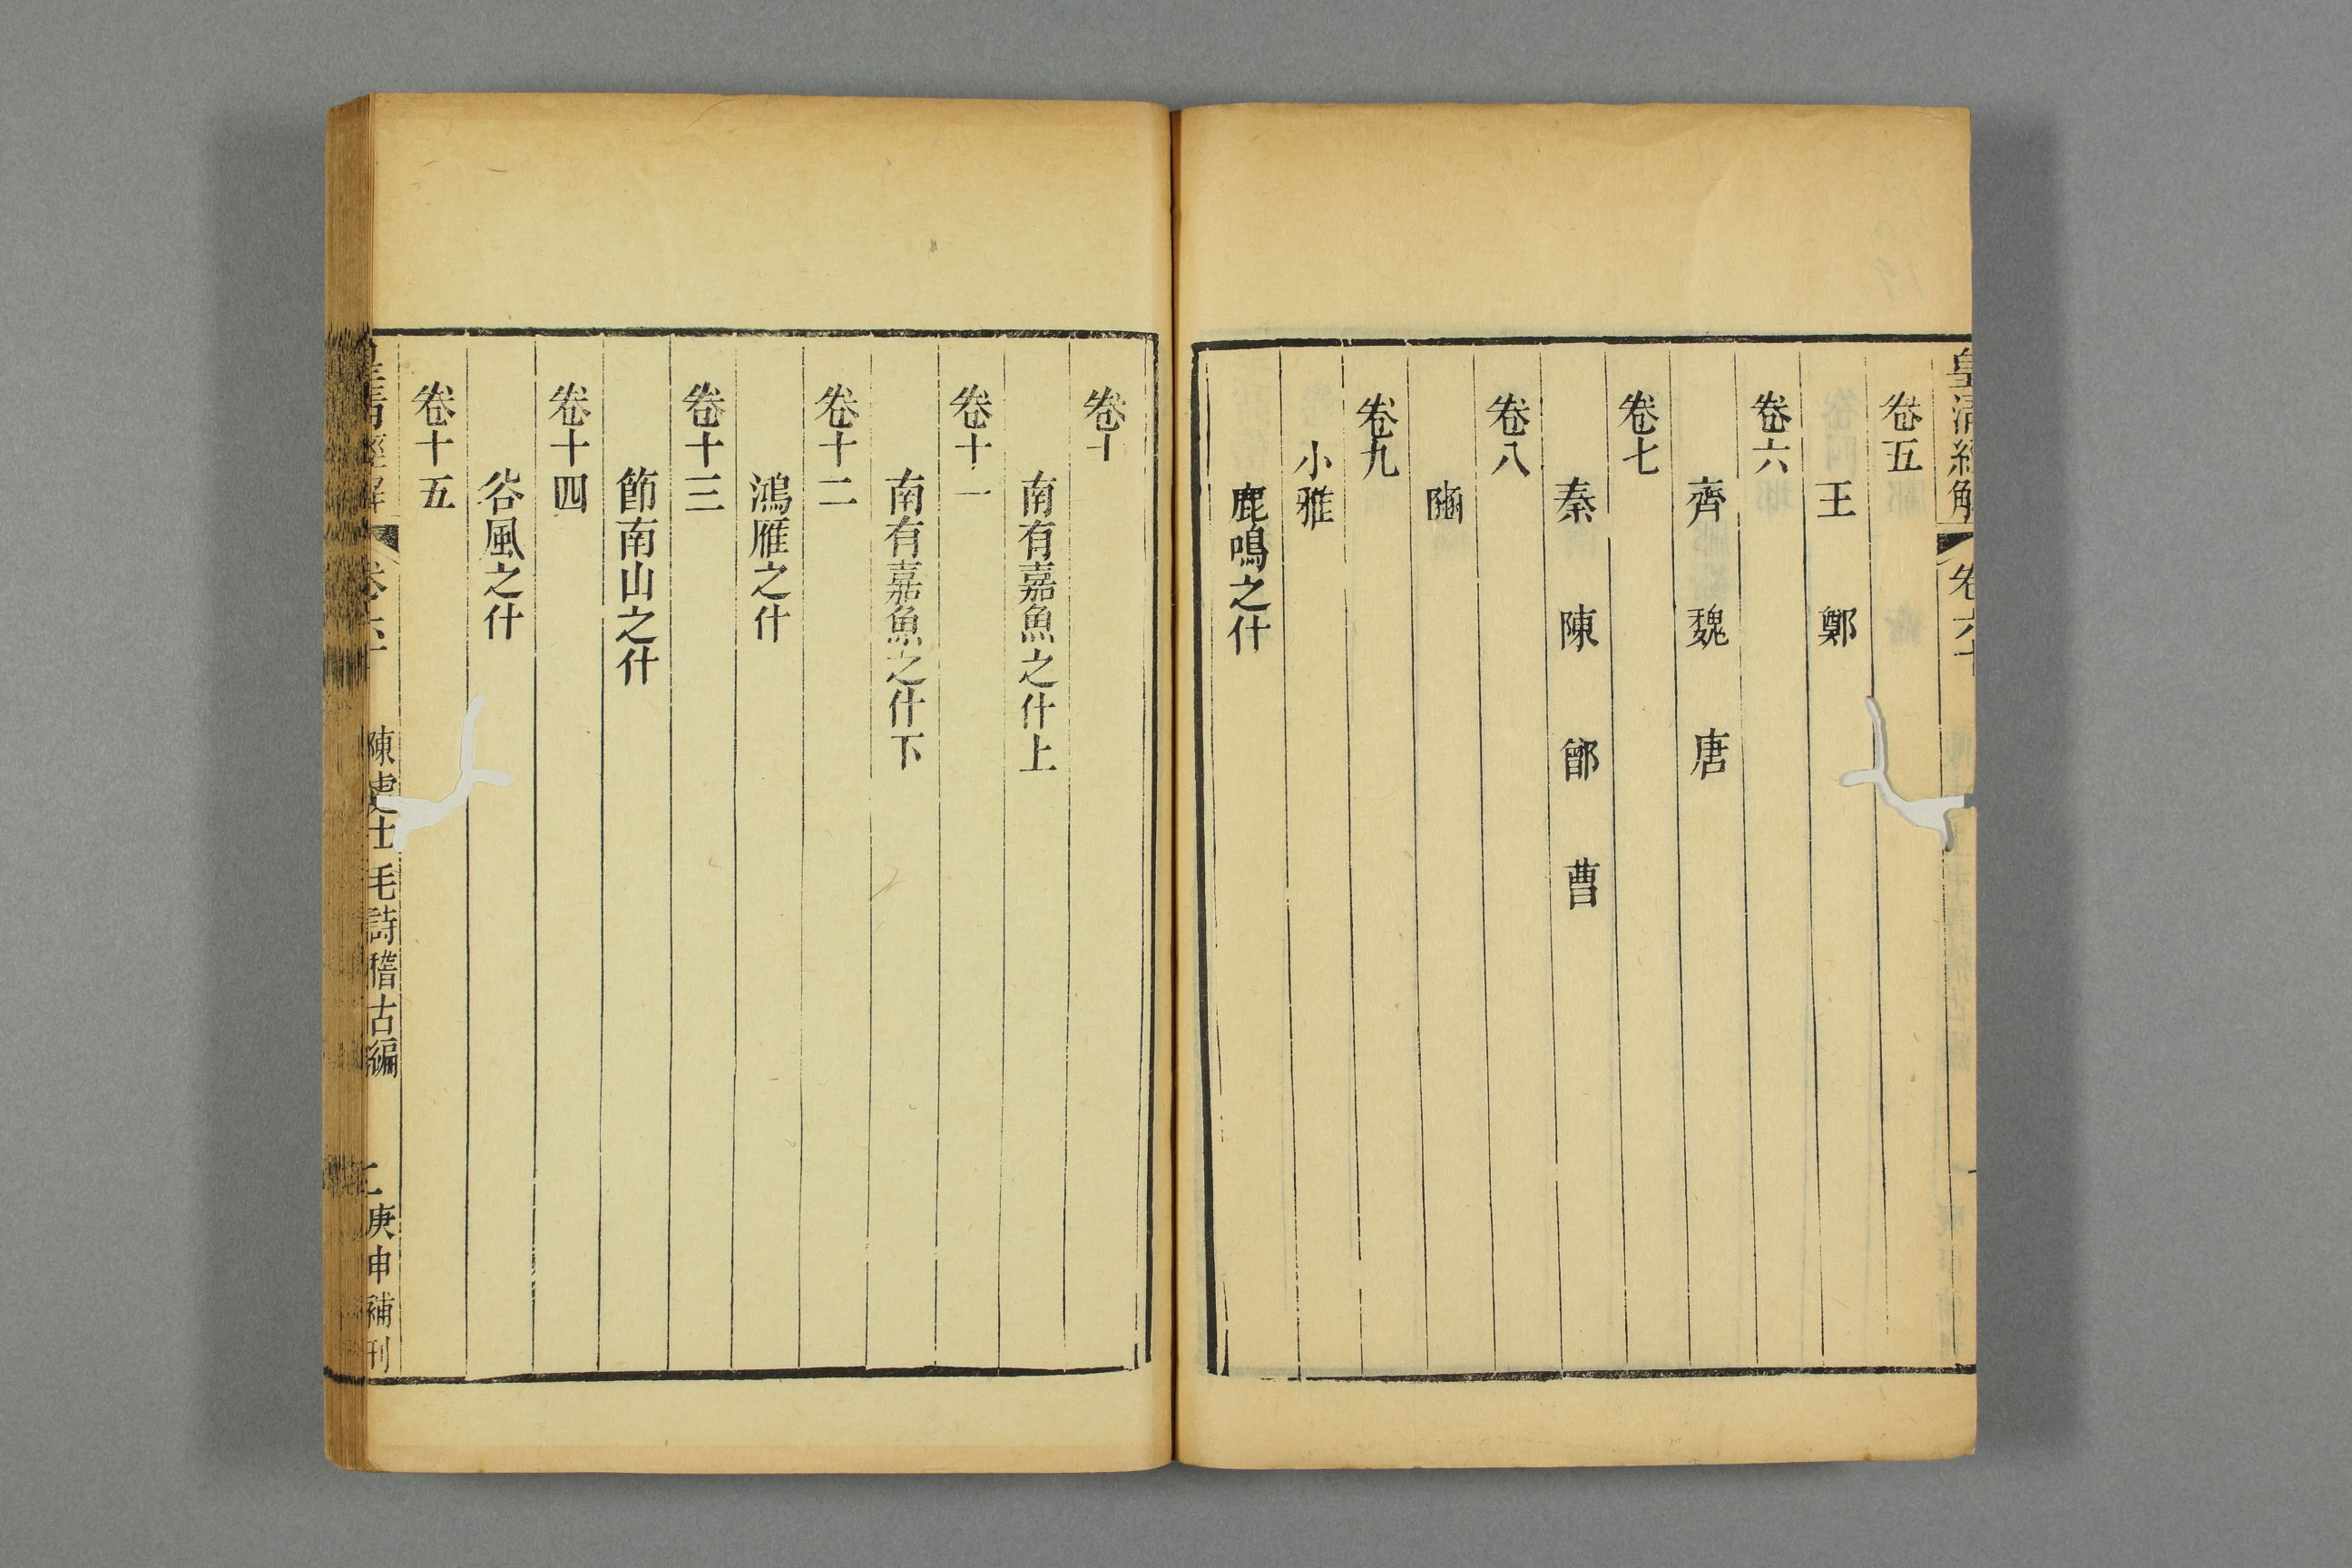 皇清經解 卷六十
卷五
王 鄭
卷六
齊 魏 唐
卷七
秦 陳 鄶 曹
卷八
豳
卷九
小雅
鹿鳴之什
卷十
南有嘉魚之什上
卷十一
南有嘉魚之什下
卷十二
鴻雁之什
卷十三
節南山之什
卷十四
谷風之什
卷十五
皇清經解 卷六十 陳處士毛詩稽古編 二 庚申補刊